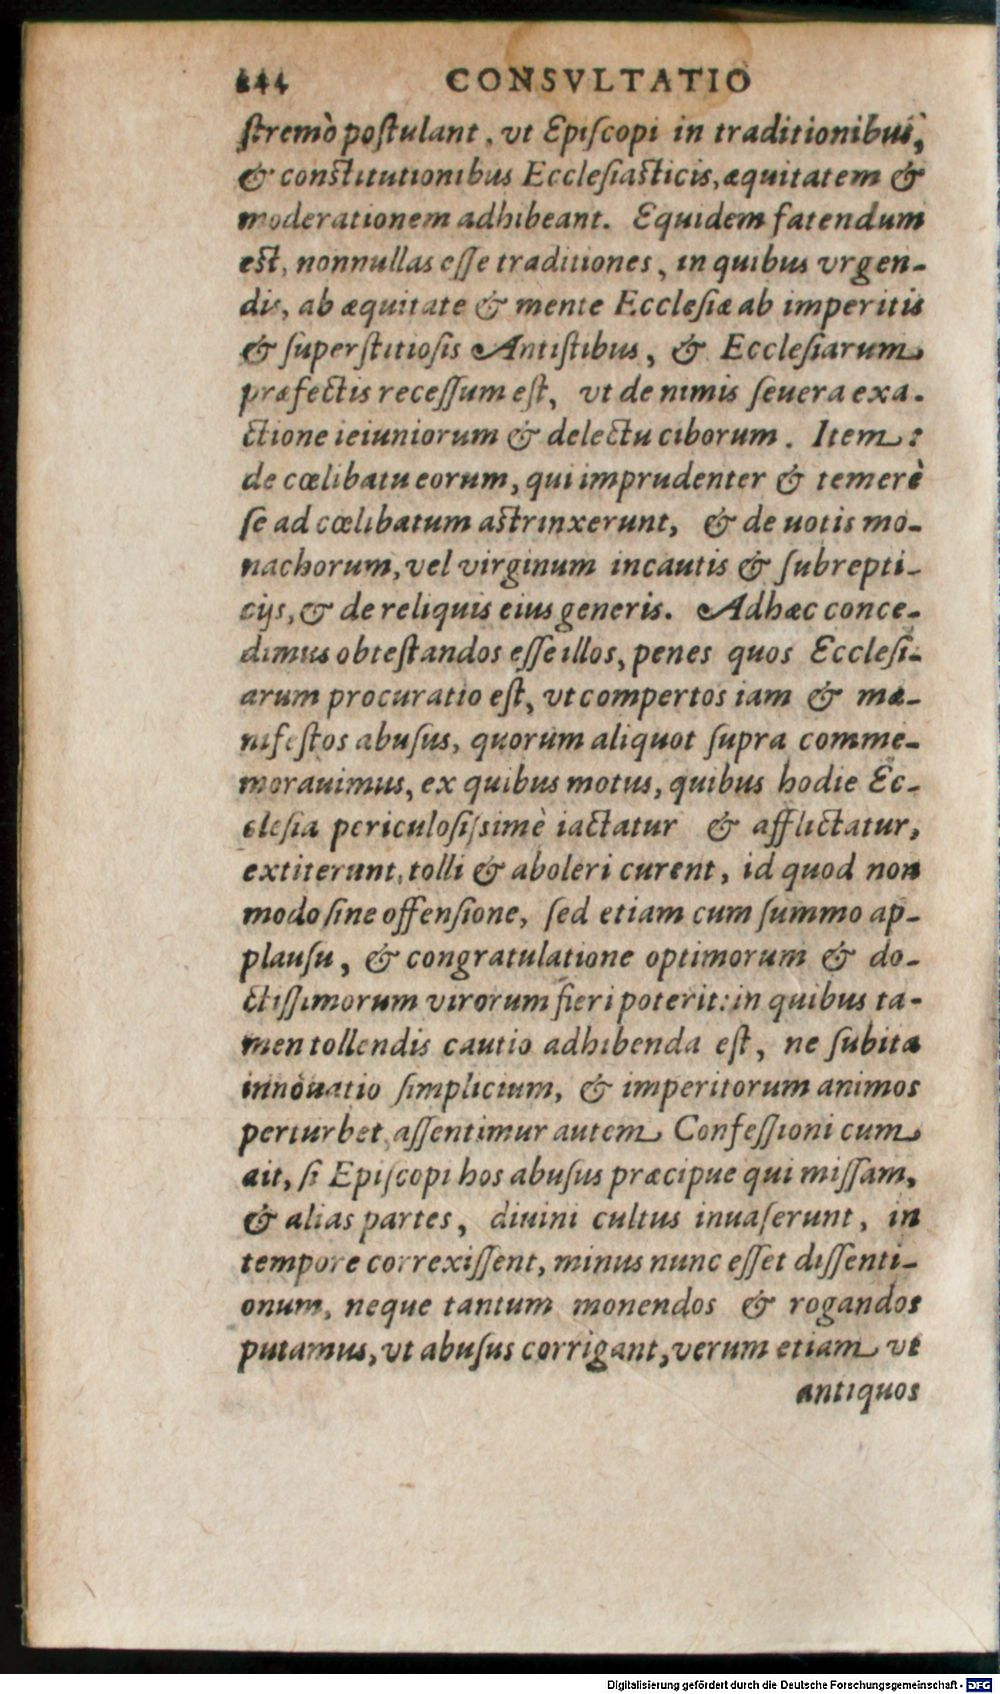 244 CONSVLTATIO
ſtremò poſtulant, vt Epiſcopi in traditionibus,
& conſtitutionibus Eccleſiaſticis, æquitatem &
moderationem adhibeant. Equidem fatendum
eſt, nonnullas eſſe traditiones, in quibus vrgen-
dis, ab æquitate & mente Eccleſiæ ab imperitis
& ſuperſtitioſis Antiſtibus, & Eccleſiarum
præfectis receſſum eſt, vt de nimis ſeuera exa-
ctione ieiuniorum & delectu ciborum. Item:
de cœlibatu eorum, qui imprudenter & temerè
ſe ad cœlibatum aſtrinxerunt, & de uotis mo-
nachorum, vel virginum incautis & ſubrepti-
cijs, & de reliquis eius generis. Adhæc conce-
dimus obteſtandos eſſe illos, penes quos Eccleſi-
arum procuratio eſt, vt compertos iam & ma-
nifeſtos abuſus, quorum aliquot ſupra comme-
morauimus, ex quibus motus, quibus hodie Ec-
cleſia periculoſiſsimè iactatur & afflictatur,
extiterunt, tolli & aboleri curent, id quod non
modo ſine offenſione, ſed etiam cum ſummo ap-
plauſu, & congratulatione optimorum & do-
ctiſſimorum virorum fieri poterit: in quibus ta-
men tollendis cautio adhibenda eſt, ne ſubita
innouatio ſimplicium, & imperitorum animos
perturbet, aſſentimur autem Confeſſioni cum
ait, ſi Epiſcopi hos abuſus præcipue qui miſſam,
& alias partes, diuini cultus inuaſerunt, in
tempore correxiſſent, minus nunc eſſet diſſenti-
onum, neque tantum monendos & rogandos
putamus, vt abuſus corrigant, verum etiam vt
antiquos
Digitalisierung gefördert durch die Deutsche Forschungsgemeinschaft - DFG